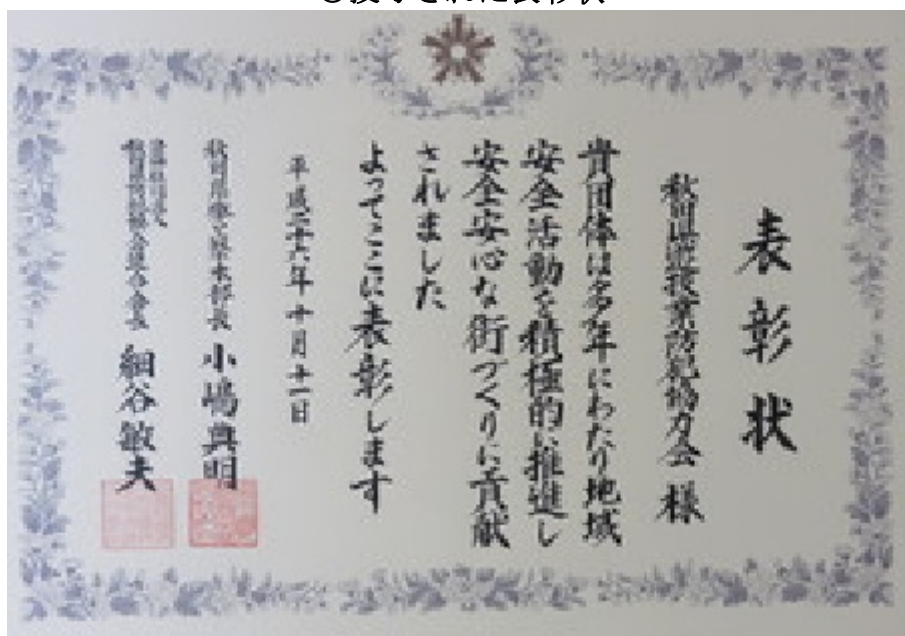 授与された表彰状
表彰状
協力会 様
貴団体は多年にわたり地域
安全活動を積極的に推進し
安全安心な街づくりに貢献
されました
よってここに表彰します
平成二十六年十月十一日
秋田県警察本部長 小嶋典明
会長 細谷敏夫